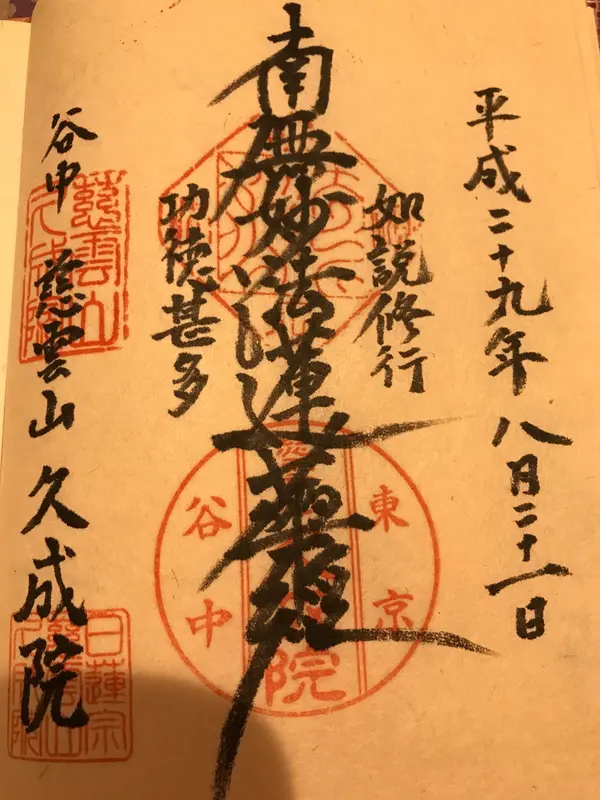 平成二十九年 八月二十一日
如説修行
南無妙法蓮華経
功徳甚多
谷中 慈雲山 久成院
慈雲山
久成院
東京
院
谷中
日蓮宗
慈雲山
久成院